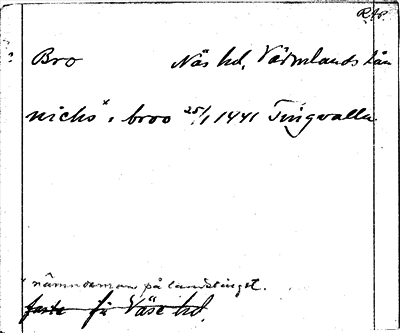 R.Ap.
Bro Näs hd, Värmlands län
nichs x i broo 25/1 1441 Tingvalla
x nämndeman på landstinget.
faste för Väse hd.